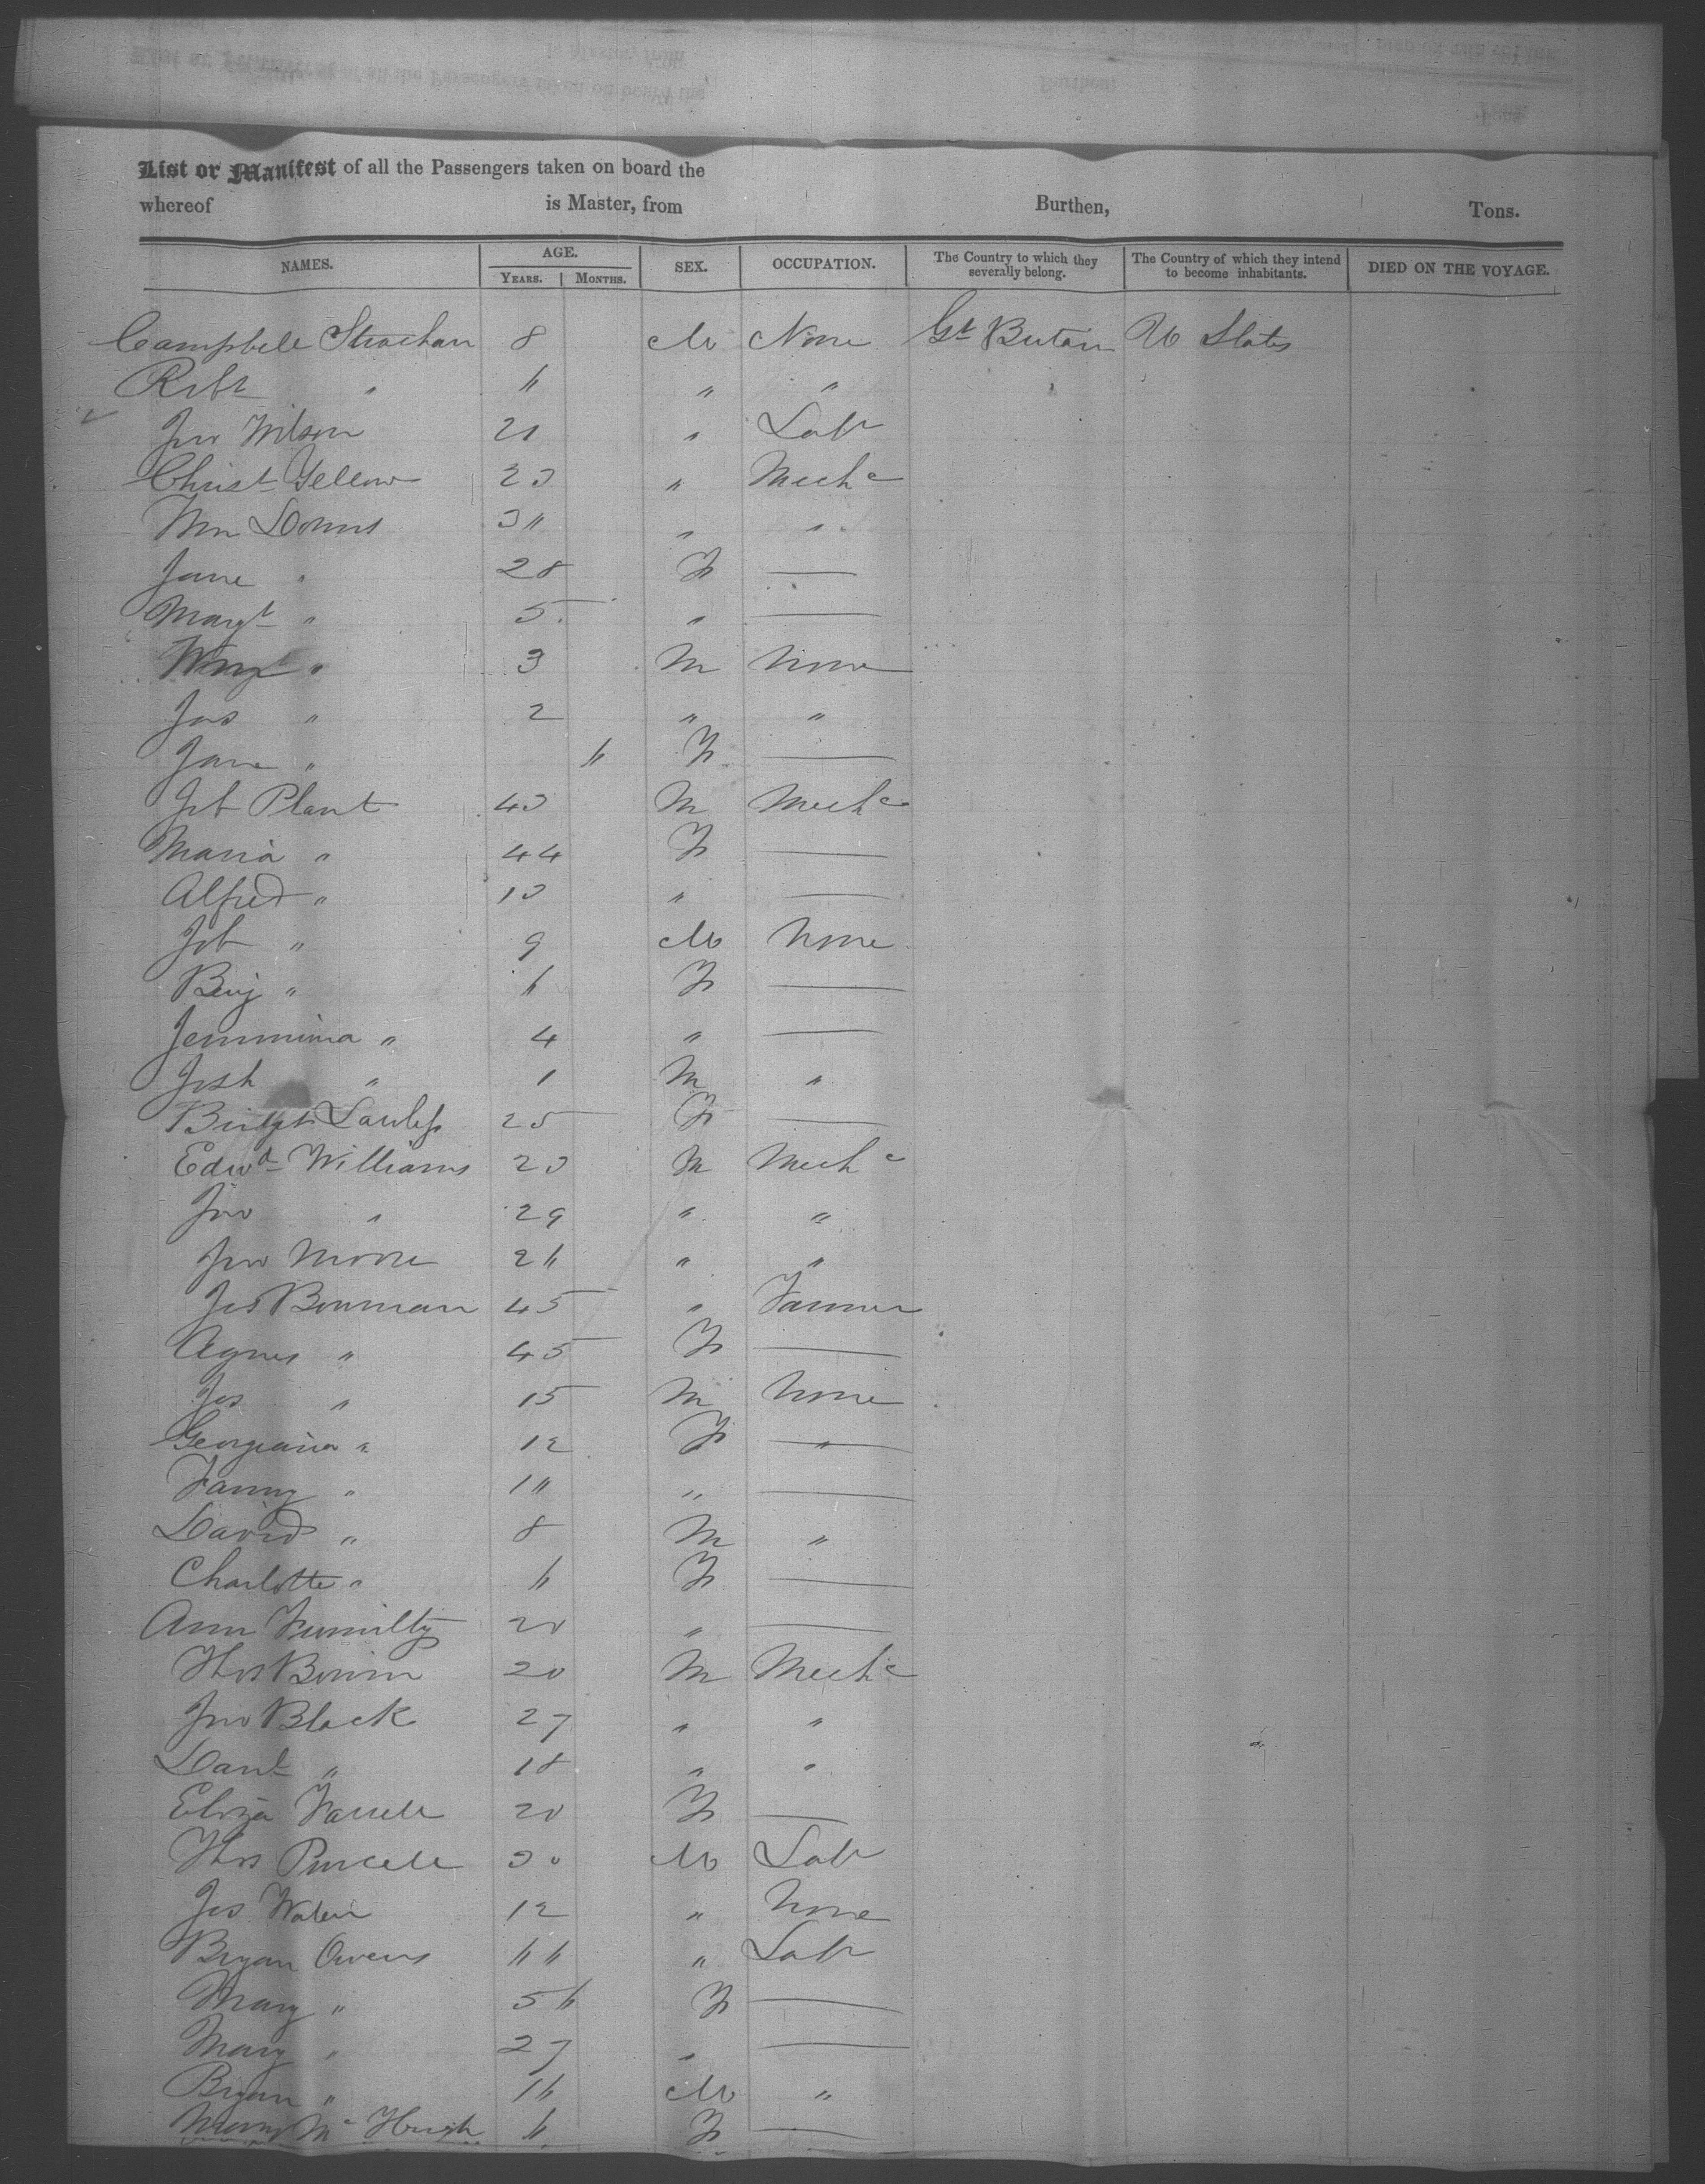 List or Manifest of all the Passengers taken on board the
whereof is Master, from Burthen, Tons.
NAMES. AGE. YEARS. MONTHS. SEX. OCCUPATION. The Country to which they severally belong. The Country of which they intend to become inhabitants. DIED ON THE VOYAGE.
Campbell Strachan 8 M None Gt Britain U States
Robt " 6 " "
Jno Wilson 21 " Labr
Christ Yellow 23 " Mechc
Wm Downs 30 " "
Jane " 28 F —
Margt " 5 " —
" 3 M None
Jas " 2 " "
Jane " 6 F —
Job Plant 43 M Mechc
Maria " 44 F —
Alfred " 13 " —
Job " 9 M None
Benj " 6 F —
Jemmima " 4 " —
Josh " 1 M "
Bridgt Lawless 25 F —
Edwd Williams 23 M Mechc
Jno " 29 " "
Jno Moore 26 " "
Jas Bowman 45 " Farmer
Agnes " 45 F —
Jas " 15 M None
Georgiana " 12 F "
Fanny " 10 " —
David " 8 M "
Charlotte " 6 F —
Ann 20 " —
Thos 20 M Mechc
Jno Black 27 " "
Danl " 18 " "
Eliza Farrell 20 F —
Thos Purcell 30 M Labr
Jas 12 " None
Bryan Owens 66 " Labr
Mary " 56 F —
Mary " 27 " —
Bryan " 16 M "
Mary Mc Hugh 6 F —